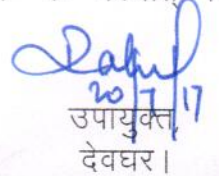 20/7/17
उपायुक्त,
देवघर।